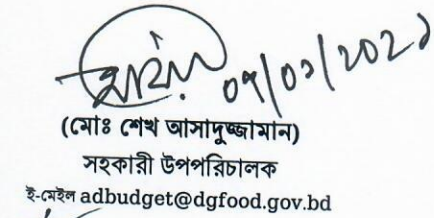 (মোঃ শেখ আসাদুজ্জামান)
সহকারী উপপরিচালক
ই-মেইল adbudget@dgfood.gov.bd